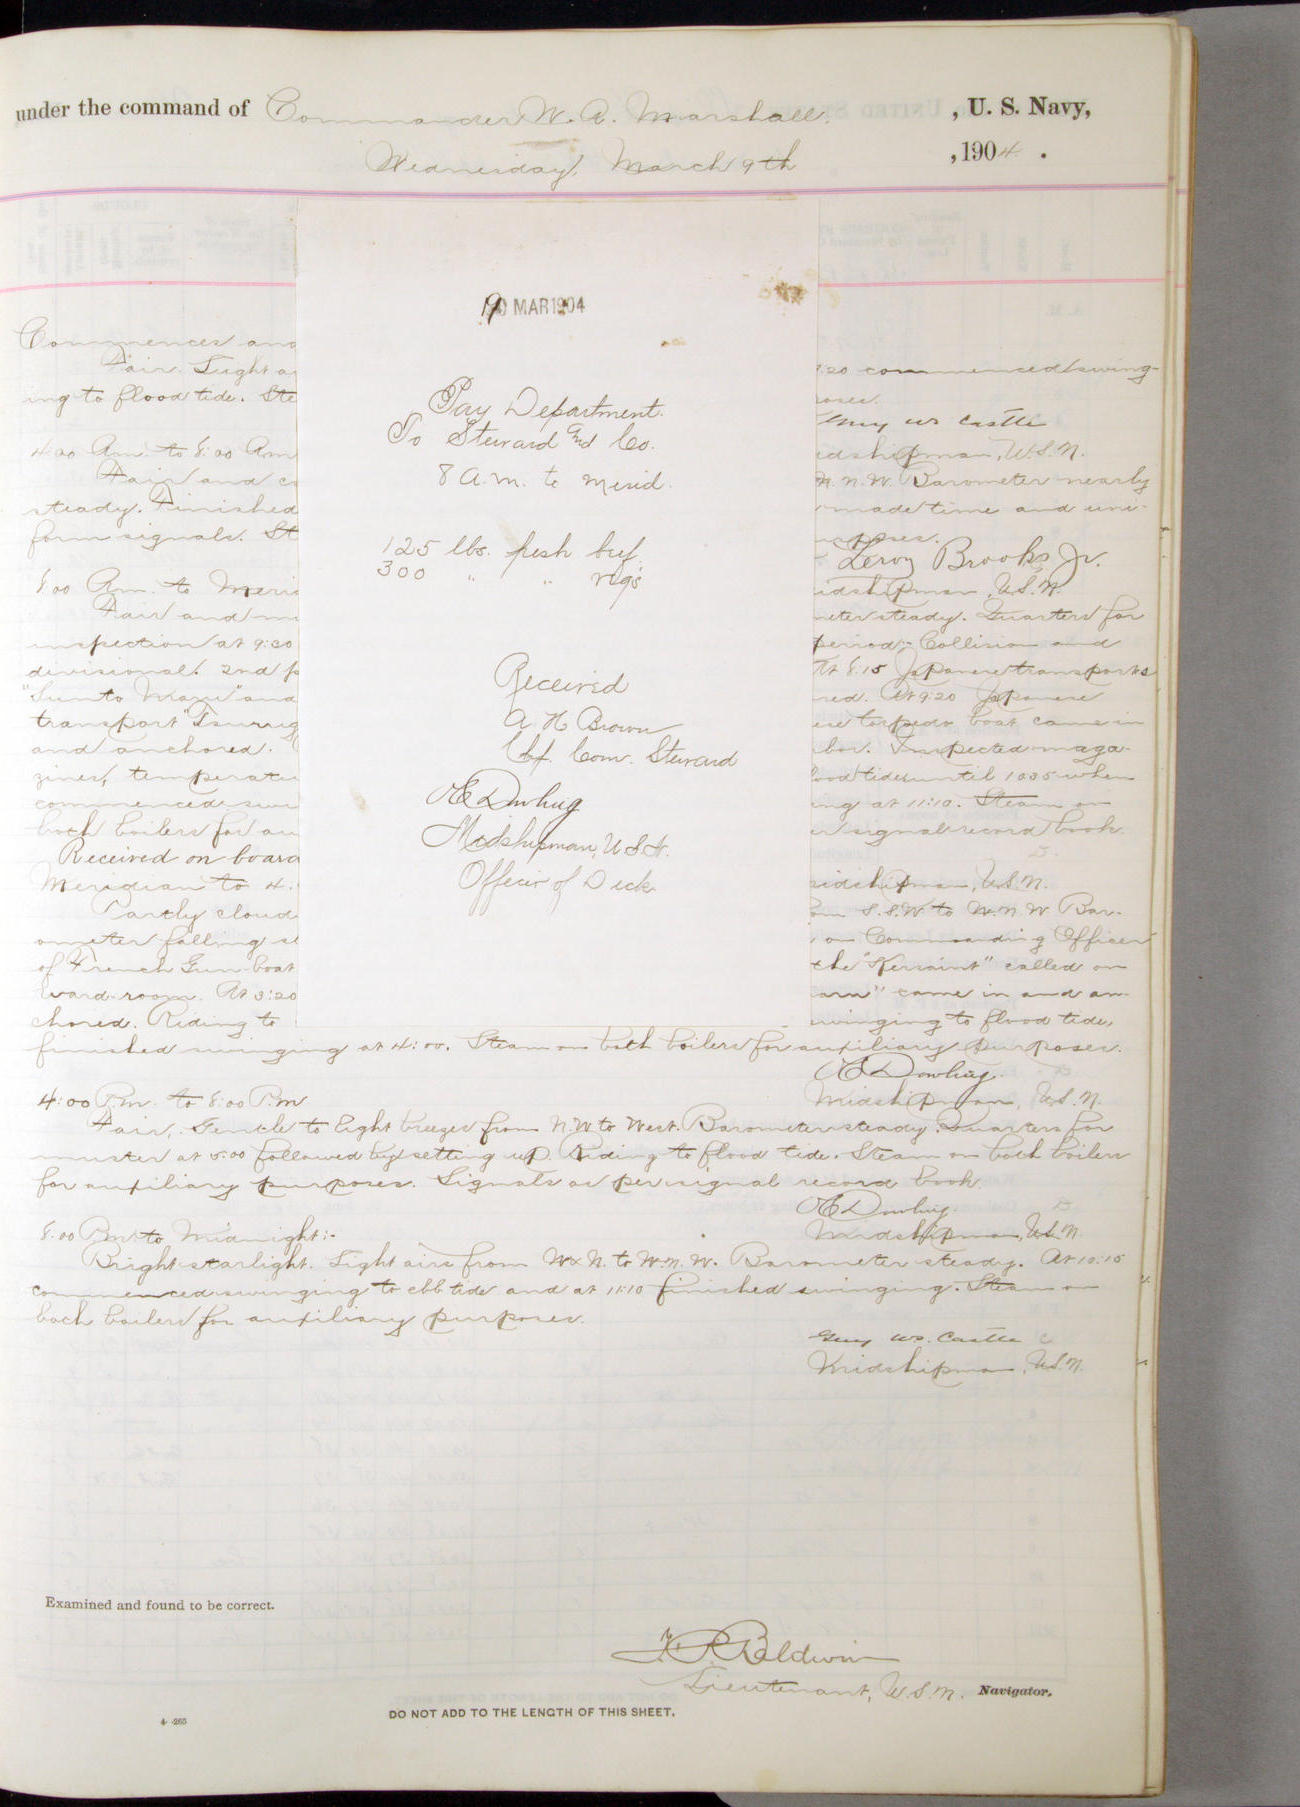 under the command of Commander W. A. Marshall, U. S. Navy,
Wednesday, March 9th, 1904.
9 MAR 1904
Pay Department.
To Steward Gnl Co.
8 a.m. to merid.
125 lbs. fresh beef
300 " " veg's
Received
A H Brown
Chf. Com. Steward
Dowling
Midshipman, U S N.
Officer of Deck
Commences and
Fair. Light a
:20 commenced swing-
ing to flood tide. Ste
poses.
Guy W. Castle
4:00 Am. to 8:00 Am
idshipman, U.S.N.
Fair and c
N. N. W. Barometer nearly
steady. Finished
made time and uni-
form signals. St
rposes.
Leroy Brooks Jr.
8:00 Am. to Meri
idshipman, U.S.N.
Fair and m
meter steady. Quarters for
inspection at 9:30
period:- Collision and
divisional. 2nd p
At 8:15 Japanese transports
Maru" and
red. At 9:20 Japanese
transport "Tsurug
ese torpedo boat came in
and anchored.
bor. Inspected maga-
zines, temperatu
lood tide until 10:35 when
commenced swi
ing at 11:10. Steam on
both boilers for au
er signal record book.
Received on board
Meridian to 4:
idshipman, U.S.N.
Partly cloud
om S.S.W to W.N.W Bar-
ometer falling st
on Commanding Officer
of French Gun-boat
the "Kersaint" called on
ward-room. At 3:20
came in and an-
chored. Riding to
swinging to flood tide,
finished swinging at 4:00. Steam on both boilers for auxiliary purposes.
Dowling.
4:00 P.m. to 8:00 P.m
Midshipman, U.S.N.
Fair. Gentle to light breezes from N.W to West. Barometer steady. Quarters for
muster at 5:00 followed by setting up. Riding to flood tide. Steam on both boilers
for auxiliary purposes. Signals as per signal record book.
Dowling.
8:00 Pm to Midnight:-
Midshipman, U.S.N.
Bright starlight. Light airs from WxN. to W.N.W. Barometer steady. At 10:15
commenced swinging to ebb tide and at 11:10 finished swinging. Steam on
both boilers for auxiliary purposes.
Guy W. Castle
Midshipman, U.S.N.
Examined and found to be correct.
Baldwin
Lieutenant, U.S.N. Navigator.
DO NOT ADD TO THE LENGTH OF THIS SHEET.
4-265